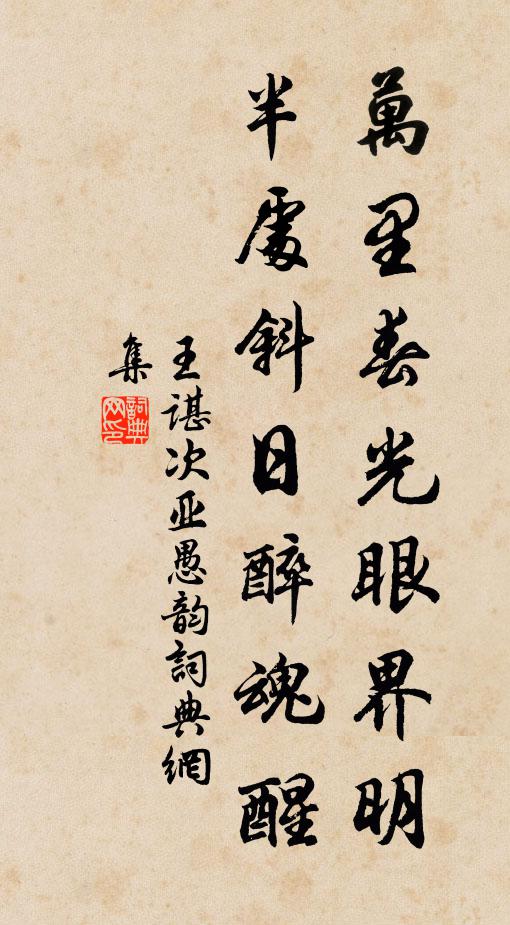 萬里春光眼界明
半處斜日醉魂醒
王谌次亚愚韵詞典網
集
詞典
网印